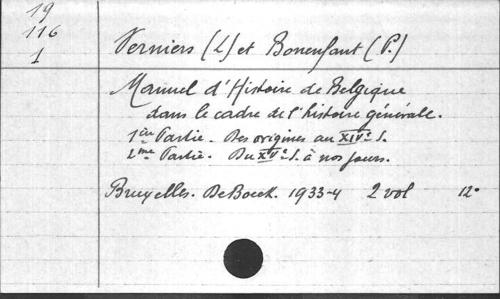 19
116
1
Verniers (L) et Bonenfant (P.)
Manuel d'Histoire de Belgique
dans le cadre de l'histoire générale.
1ère Partie. Des origines au XIVe S.
2me Partie. Du XVe S. à nos jours.
Bruxelles. De Boeck. 1933-4 2 vol 12°